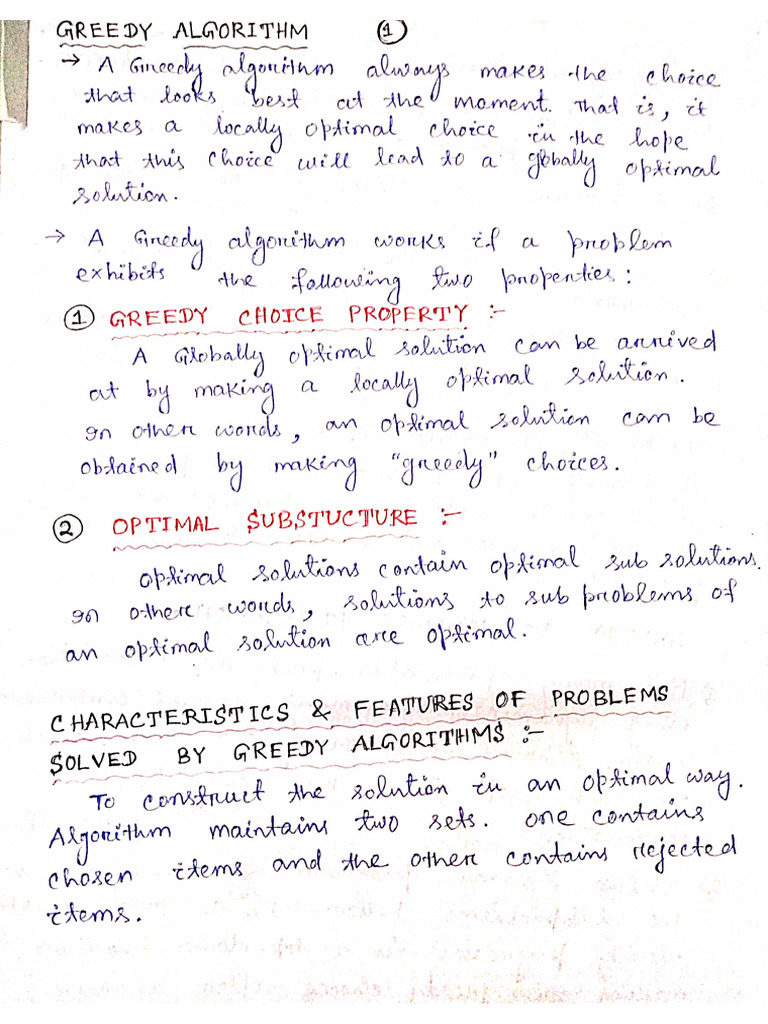 GREEDY ALGORITHM ①
→ A Greedy algorithm always makes the choice
that looks best at the moment. That is, it
makes a locally optimal choice in the hope
that this choice will lead to a globally optimal
solution.
→ A Greedy algorithm works if a problem
exhibits the following two properties:
① GREEDY CHOICE PROPERTY :-
A Globally optimal solution can be arrived
at by making a locally optimal solution.
In other words, an optimal solution can be
obtained by making "greedy" choices.
② OPTIMAL SUBSTUCTURE :-
Optimal solutions contain optimal sub solutions.
In other words, solutions to sub problems of
an optimal solution are optimal.
CHARACTERISTICS & FEATURES OF PROBLEMS
SOLVED BY GREEDY ALGORITHMS :-
To construct the solution in an optimal way.
Algorithm maintains two sets. One contains
chosen items and the other contains rejected
items.